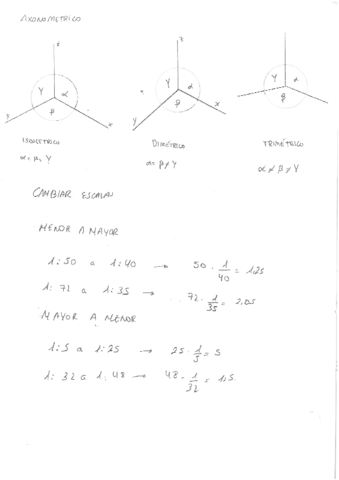 AXONOMETRICO
z
z
γ α
γ α
γ α
β
β
β
y x
y x
ISOMETRICO
DIMÉTRICO
TRIMÉTRICO
α = β = γ
α = β ≠ γ
α ≠ β ≠ γ
CAMBIAR ESCALAS
MENOR A MAYOR
1:50 a 1:40 → 50 · 1/40 = 1,25
1: 72 a 1:35 → 72 · 1/35 = 2,05
MAYOR A MENOR
1:5 a 1:25 → 25 · 1/5 = 5
1: 32 a 1:48 → 48 · 1/32 = 1,5